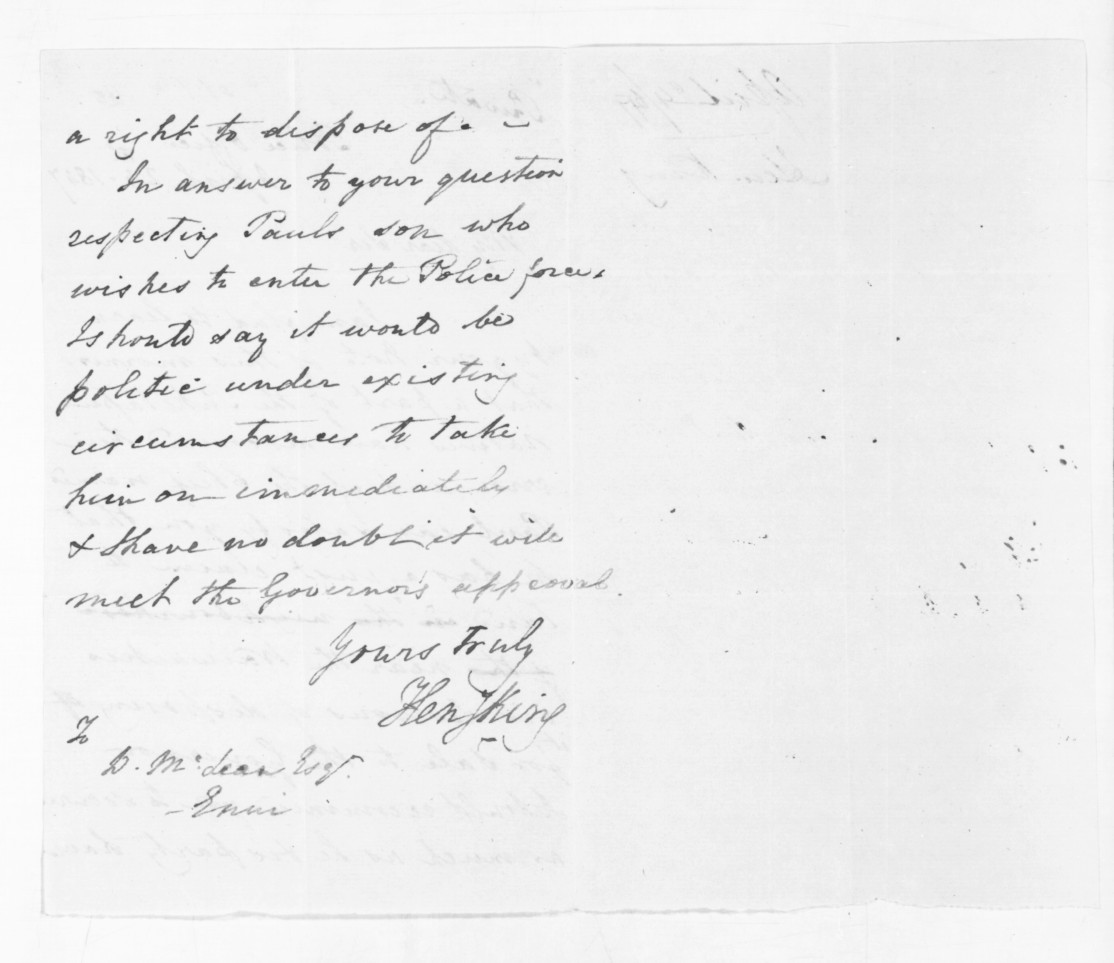 a right to dispose of. –
In answer to your question
respecting Pauls son who
wishes to enter the Police force,
I should say it would be
politic under existing
circumstances to take
him on immediately
& I have no doubt it will
meet the Governor's approval.
Yours truly
Hen^y King
To
D. McLean Esq^r.